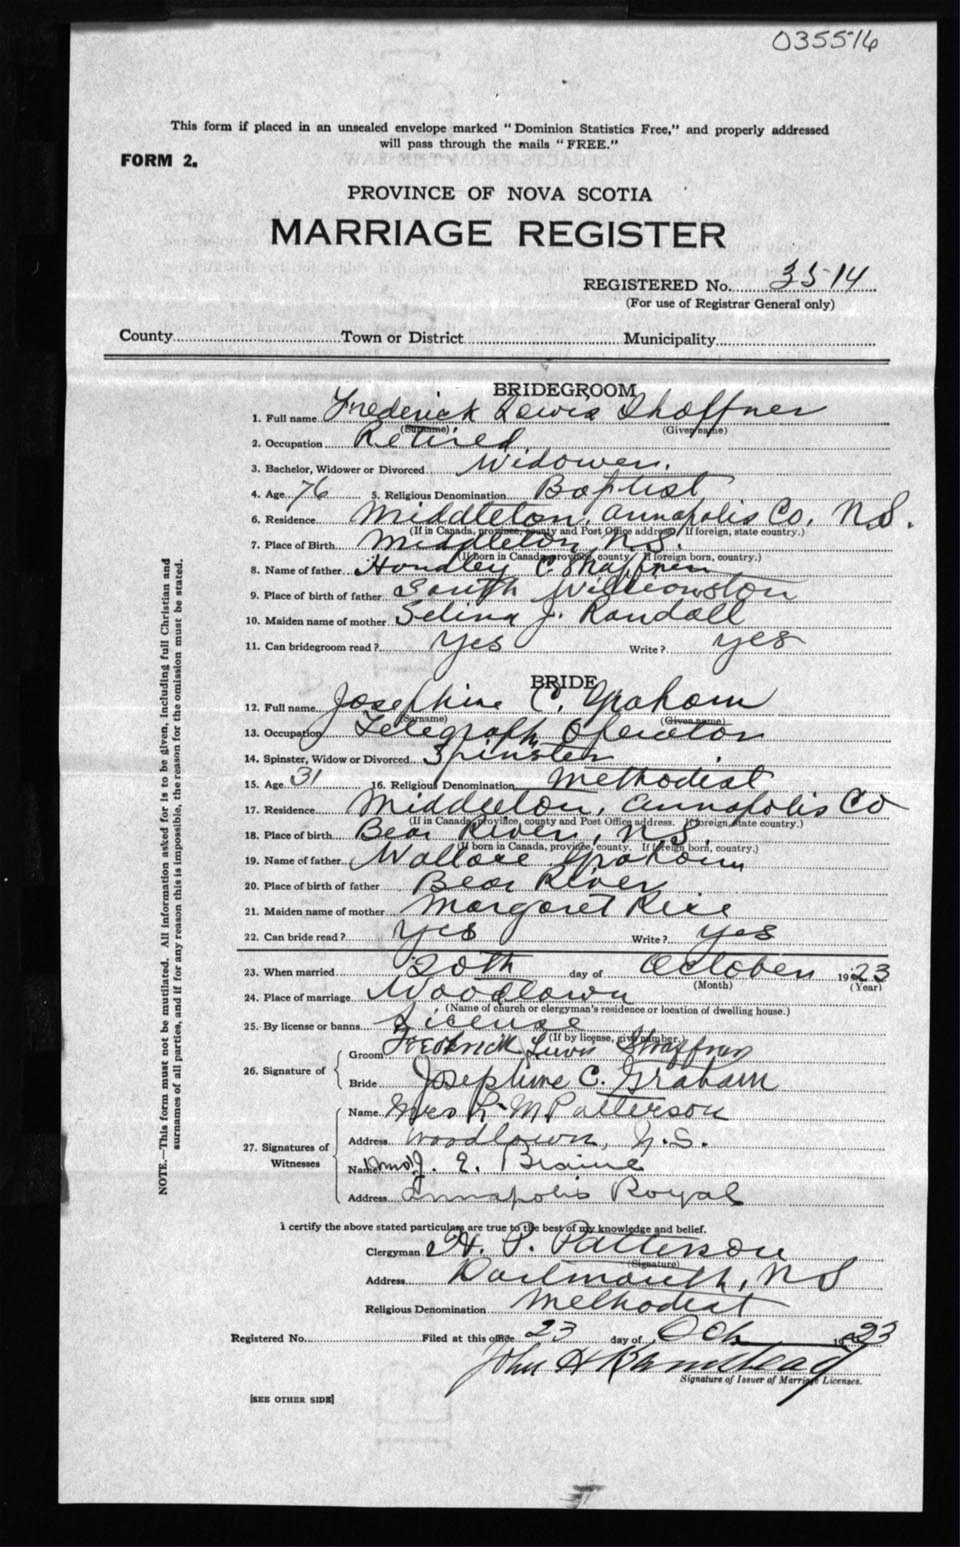 035516
This form if placed in an unsealed envelope marked "Dominion Statistics Free," and properly addressed
will pass through the mails "FREE."
FORM 2.
PROVINCE OF NOVA SCOTIA
MARRIAGE REGISTER
REGISTERED No. 3514
(For use of Registrar General only)
County Town or District Municipality
BRIDEGROOM
1. Full name Frederick Lewis Shaffner
(Surname) (Given name)
2. Occupation Retired
3. Bachelor, Widower or Divorced Widower.
4. Age 76 5. Religious Denomination Baptist
6. Residence Middleton, Annapolis Co, N.S.
(If in Canada, province, county and Post Office address. If foreign, state country.)
7. Place of Birth Middleton, N.S.
(If born in Canada, province, county. If foreign born, country.)
8. Name of father Handley C. Shaffner
9. Place of birth of father South Williamston
10. Maiden name of mother Selina J. Randall
11. Can bridegroom read? Yes Write? yes
BRIDE
12. Full name Josephine C. Graham
(Surname) (Given name)
13. Occupation Telegraph Operator
14. Spinster, Widow or Divorced Spinster
15. Age 31 16. Religious Denomination Methodist
17. Residence Middleton, Annapolis Co
(If in Canada, province, county and Post Office address. If foreign, state country.)
18. Place of birth Bear River, N.S.
(If born in Canada, province, county. If foreign born, country.)
19. Name of father Wallace Graham
20. Place of birth of father Bear River
21. Maiden name of mother Margaret Rice
22. Can bride read? Yes Write? yes
23. When married 20th day of October 1923
(Month) (Year)
24. Place of marriage Woodlawn
(Name of church or clergyman's residence or location of dwelling house.)
25. By license or banns License
(If by license, give number.)
26. Signature of
Groom Frederick Lewis Shaffner
Bride Josephine C. Graham
27. Signatures of
Witnesses
Name Mrs L. M Patterson
Address Woodlawn, N.S.
Name J. E. Braine
Address Annapolis Royal
I certify the above stated particulars are true to the best of my knowledge and belief.
Clergyman H. P. Patterson
(Signature)
Address Dartmouth, N S
Religious Denomination Methodist
Registered No. Filed at this office 23 day of Oct 1923
John H
Signature of Issuer of Marriage Licenses.
[SEE OTHER SIDE]
NOTE.—This form must not be mutilated. All information asked for is to be given, including full Christian and
surnames of all parties, and if for any reason this is impossible, the reason for the omission must be stated.